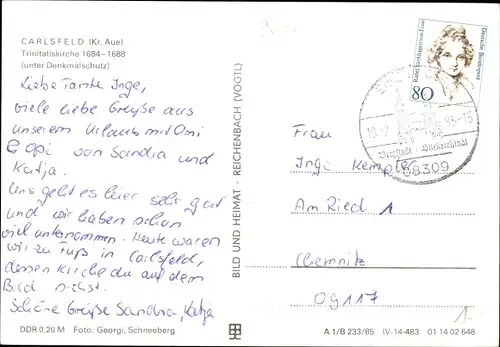 CARLSFELD (Kr. Aue)
Trinitatiskirche 1684–1688
(unter Denkmalschutz)
Liebe Tante Inge,
viele liebe Grüße aus
unserem Urlaub mit Omi
& Opi von Sandra und
Katja.
Uns geht es hier sehr gut
und wir haben schon
viel unternommen. Heute waren
wir zu Fuß in Carlsfeld,
dessen Kirche du auf dem
Bild siehst.
Schöne Grüße Sandra, Katja
DDR 0,20 M Foto: Georgi, Schneeberg
BILD UND HEIMAT · REICHENBACH (VOGTL)
Deutsche Bundespost
80
08309
Frau
Inge Kempter
Am Ried 1
Chemnitz
09117
1.-
A 1/B 233/85 IV-14-483 01 14 02 648